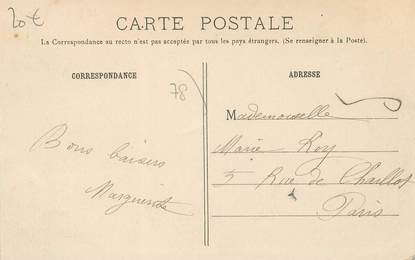 20€
CARTE POSTALE
La Correspondance au recto n'est pas acceptée par tous les pays étrangers. (Se renseigner à la Poste).
CORRESPONDANCE
ADRESSE
78
Mademoiselle
Marie Roy
5 Rue de Chaillot
Paris
Bons baisers
Marguerite